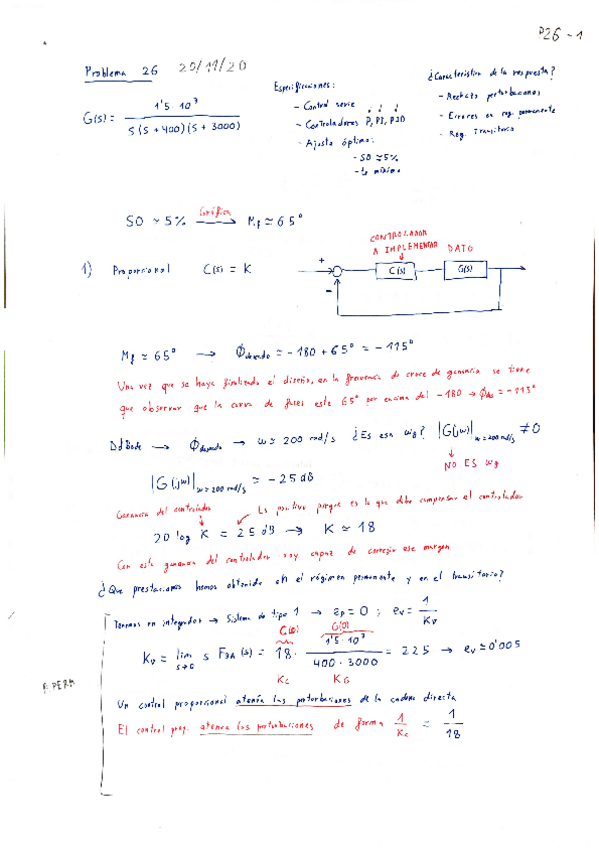 P26 - 1
Problema 26 20/11/20
G(s) = 1'5 · 10⁷ / s(s + 400)(s + 3000)
Especificaciones:
- Control serie
- Controladores P, PI, PID
- Ajuste óptimo:
- SO ≈ 5%
- ts mínimo
¿Característica de la respuesta?
- Rechazo perturbaciones
- Errores en reg. permanente
- Reg. Transitorio
SO ≈ 5% Gráfica → Mf ≈ 65°
1) Proporcional C(s) = K
CONTROLADOR
A IMPLEMENTAR DATO
+
C(s) G(s)
-
Mf ≈ 65° → Φdeseado ≈ -180 + 65° = -115°
Una vez que se haya finalizado el diseño, en la frecuencia de cruce de ganancia se tiene
que observar que la curva de fases este 65° por encima del -180 → Φdes = -115°
DdBode → Φdeseado → w ≈ 200 rad/s ¿Es esa wg? |G(jw)|w=200 rad/s ≠ 0
↓
NO ES wg
|G(jw)|w=200 rad/s ≈ -25 dB
Ganancia del controlador Es positivo porque es lo que debe compensar el controlador
20 log K = 25 dB → K ≈ 18
Con esta ganancia del controlador soy capaz de corregir ese margen
¿Que prestaciones hemos obtenido en el régimen permanente y en el transitorio?
Tenemos un integrador → Sistema de tipo 1 → ep = 0 ; ev = 1/Kv
C(0) G(0)
Kv = lim s→0 s FBA(s) = 18 · 1'5 · 10⁷ / 400 · 3000 = 225 → ev ≈ 0'005
Kc KG
R. PERM
Un control proporcional atenúa las perturbaciones de la cadena directa
El control prop. atenua las perturbaciones de forma 1/Kc = 1/18